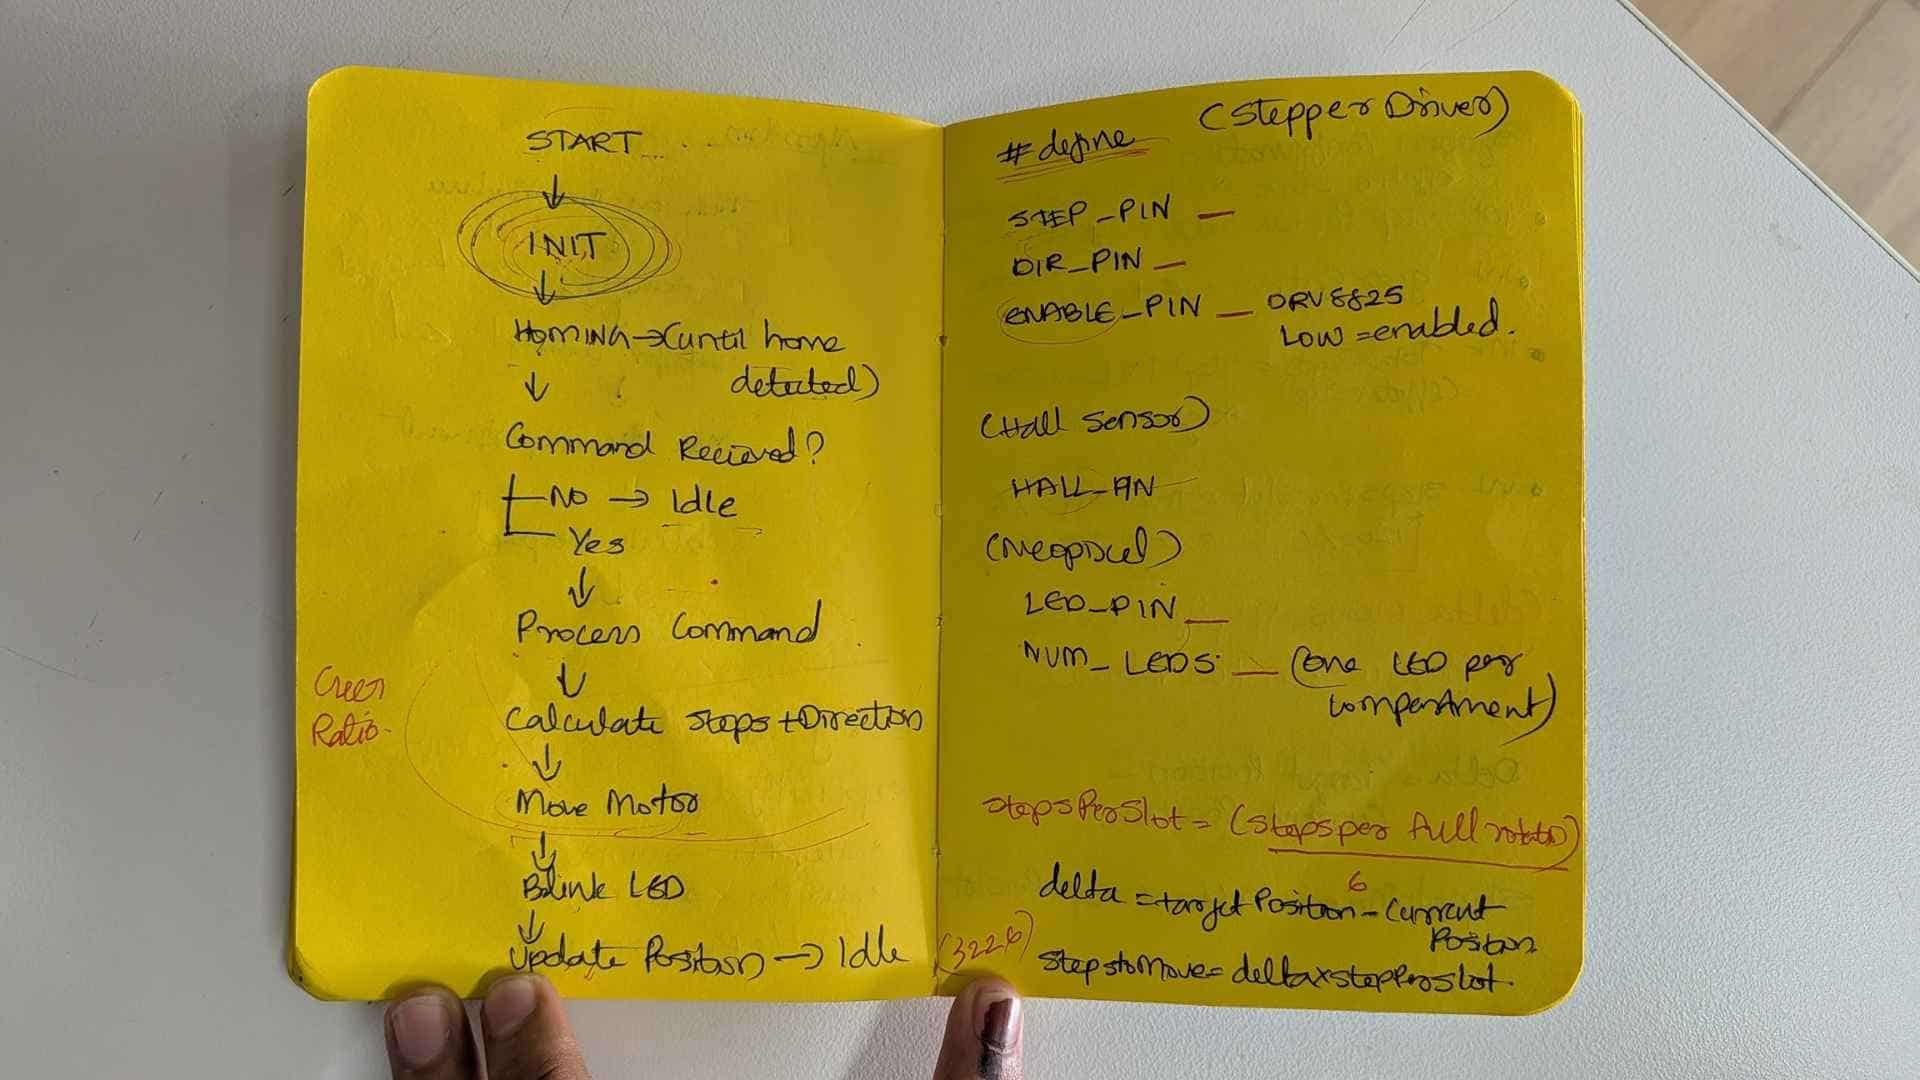 START
↓
INIT
↓
HOMING → (until home
detected)
↓
Command Recieved?
NO → Idle
Yes
↓
Process Command
↓
Calculate Steps + Direction
↓
Move Motor
↓
Blink LED
↓
Update Position → Idle
Gear
Ratio
(Stepper Driver)
#define
STEP_PIN —
DIR_PIN —
ENABLE_PIN — DRV8825
LOW = enabled.
(Hall Sensor)
HALL_PIN
(Neopixel)
LED_PIN —
NUM_LEDS — (one LED per
compartment)
StepsPerSlot = (Steps per full rotation)
6
delta = target Position - Current
Position
StepstoMove = delta x stepPerSlot.